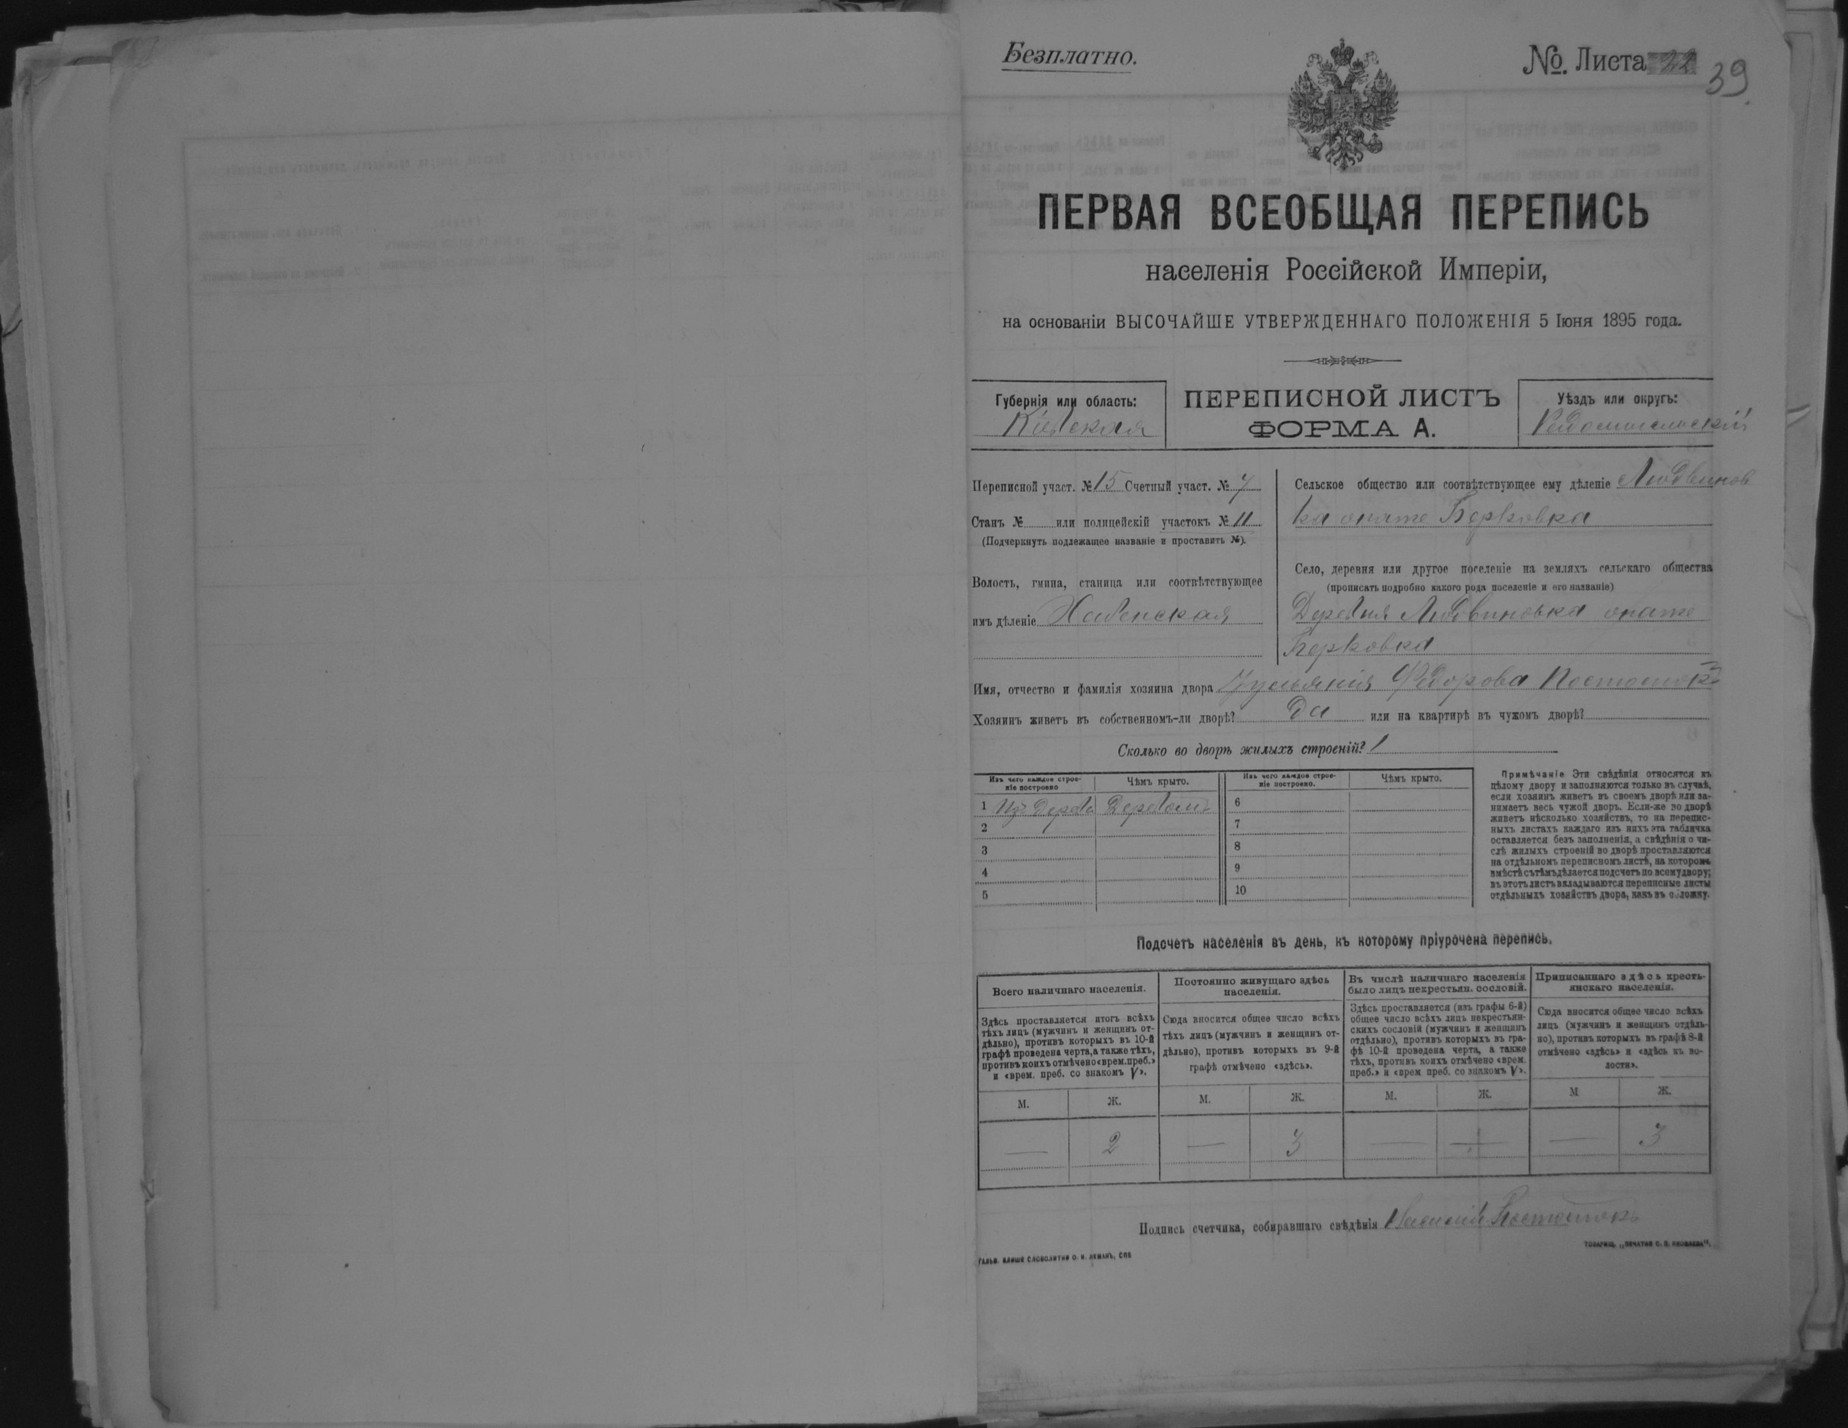 Безплатно.
№. Листа 22
39
ПЕРВАЯ ВСЕОБЩАЯ ПЕРЕПИСЬ
населенія Россійской Имперіи,
на основаніи ВЫСОЧАЙШЕ УТВЕРЖДЕННАГО ПОЛОЖЕНІЯ 5 Іюня 1895 года.
Губернія или область:
Кіевская
ПЕРЕПИСНОЙ ЛИСТЪ
ФОРМА А.
Уѣздъ или округъ:
Радомысльскій
Переписной участ. № 15 Счетный участ. № 7
Станъ № или полицейскій участокъ № 11
(Подчеркнуть подлежащее названіе и проставить №).
Волость, гмина, станица или соотвѣтствующее
имъ дѣленіе Хабенская
Сельское общество или соотвѣтствующее ему дѣленіе Людвинов
ка онаже Берковка
Село, деревня или другое поселеніе на земляхъ сельскаго общества
(прописать подробно какого рода поселеніе и его названіе)
Деревня Людвиновка онаже
Берковка
Имя, отчество и фамилія хозяина двора Федорова
Хозяинъ живетъ въ собственномъ-ли дворѣ? Да или на квартирѣ въ чужомъ дворѣ?
Сколько во дворѣ жилыхъ строеній? 1
Изъ чего каждое строе-
ніе построено
Чѣмъ крыто.
1 Изъ Дерева Деревомъ
2
3
4
5
Изъ чего каждое строе-
ніе построено.
Чѣмъ крыто.
6
7
8
9
10
Примѣчаніе Эти свѣдѣнія относятся къ
цѣлому двору и заполняются только въ случаѣ,
если хозяинъ живетъ въ своемъ дворѣ или за-
нимаетъ весь чужой дворъ. Если-же во дворѣ
живетъ нѣсколько хозяйствъ, то на перепис-
ныхъ листахъ каждаго изъ нихъ эта табличка
оставляется безъ заполненія, а свѣдѣнія о чи-
слѣ жилыхъ строеній во дворѣ проставляются
на отдѣльномъ переписномъ листѣ, на которомъ
вмѣстѣ съ тѣмъ дѣлается подсчетъ по всему двору;
въ этотъ листъ вкладываются переписные листы
отдѣльныхъ хозяйствъ двора, какъ въ обложку.
Подсчетъ населенія въ день, къ которому пріурочена перепись.
Всего наличнаго населенія.
Здѣсь проставляется итогъ всѣхъ
тѣхъ лицъ (мужчинъ и женщинъ от-
дѣльно), противъ которыхъ въ 10-й
графѣ проведена черта, а также тѣхъ,
противъ коихъ отмѣчено «врем. преб.»
и «врем. преб. со знакомъ V».
М. Ж.
— 2
Постоянно живущаго здѣсь
населенія.
Сюда вносится общее число всѣхъ
тѣхъ лицъ (мужчинъ и женщинъ от-
дѣльно), противъ которыхъ въ 9-й
графѣ отмѣчено «здѣсь».
М. Ж.
— 3
Въ числѣ наличнаго населенія
было лицъ некрестьян. сословій.
Здѣсь проставляется (изъ графы 6-й)
общее число всѣхъ лицъ некрестьян-
скихъ сословій (мужчинъ и женщинъ
отдѣльно), противъ которыхъ въ гра-
фѣ 10-й проведена черта, а также
тѣхъ, противъ коихъ отмѣчено «врем.
преб.» и «врем преб. со знакомъ V».
М. Ж.
—
Приписаннаго здѣсь кресть-
янскаго населенія.
Сюда вносится общее число всѣхъ
лицъ (мужчинъ и женщинъ отдѣль-
но), противъ которыхъ въ графѣ 8-й
отмѣчено «здѣсь» и «здѣсь къ во-
лости».
М Ж.
— 3
Подпись счетчика, собиравшаго свѣдѣнія
ГАЛЬВ. КЛИШЕ СЛОВОЛИТНИ О. И. ЛЕМАНЪ, СПБ
ТОВАРИЩ. „ПЕЧАТНЯ С. П. ЯКОВЛЕВА“.